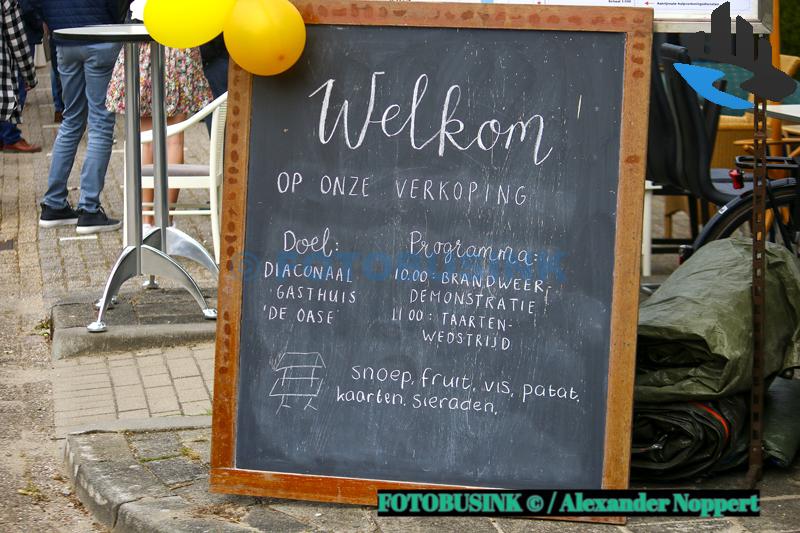 Welkom
OP ONZE VERKOPING
Doel:
DIACONAAL
GASTHUIS
'DE OASE'
Programma:
10.00 BRANDWEER-
DEMONSTRATIE
11 00: TAARTEN-
WEDSTRIJD
snoep, fruit, vis, patat,
kaarten, sieraden,
© FOTOBUSINK
FOTOBUSINK © / Alexander Noppert